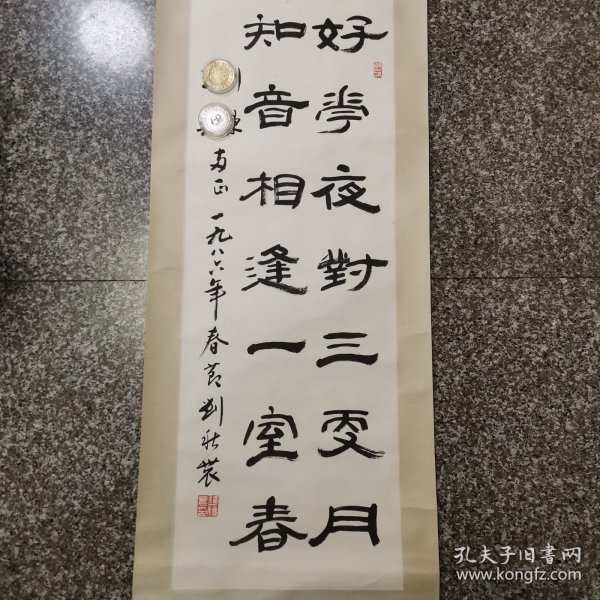 好花夜對三更月
知音相逢一室春
方正 一九八六年春节 劉秋農
孔夫子旧书网
www.kongfz.com